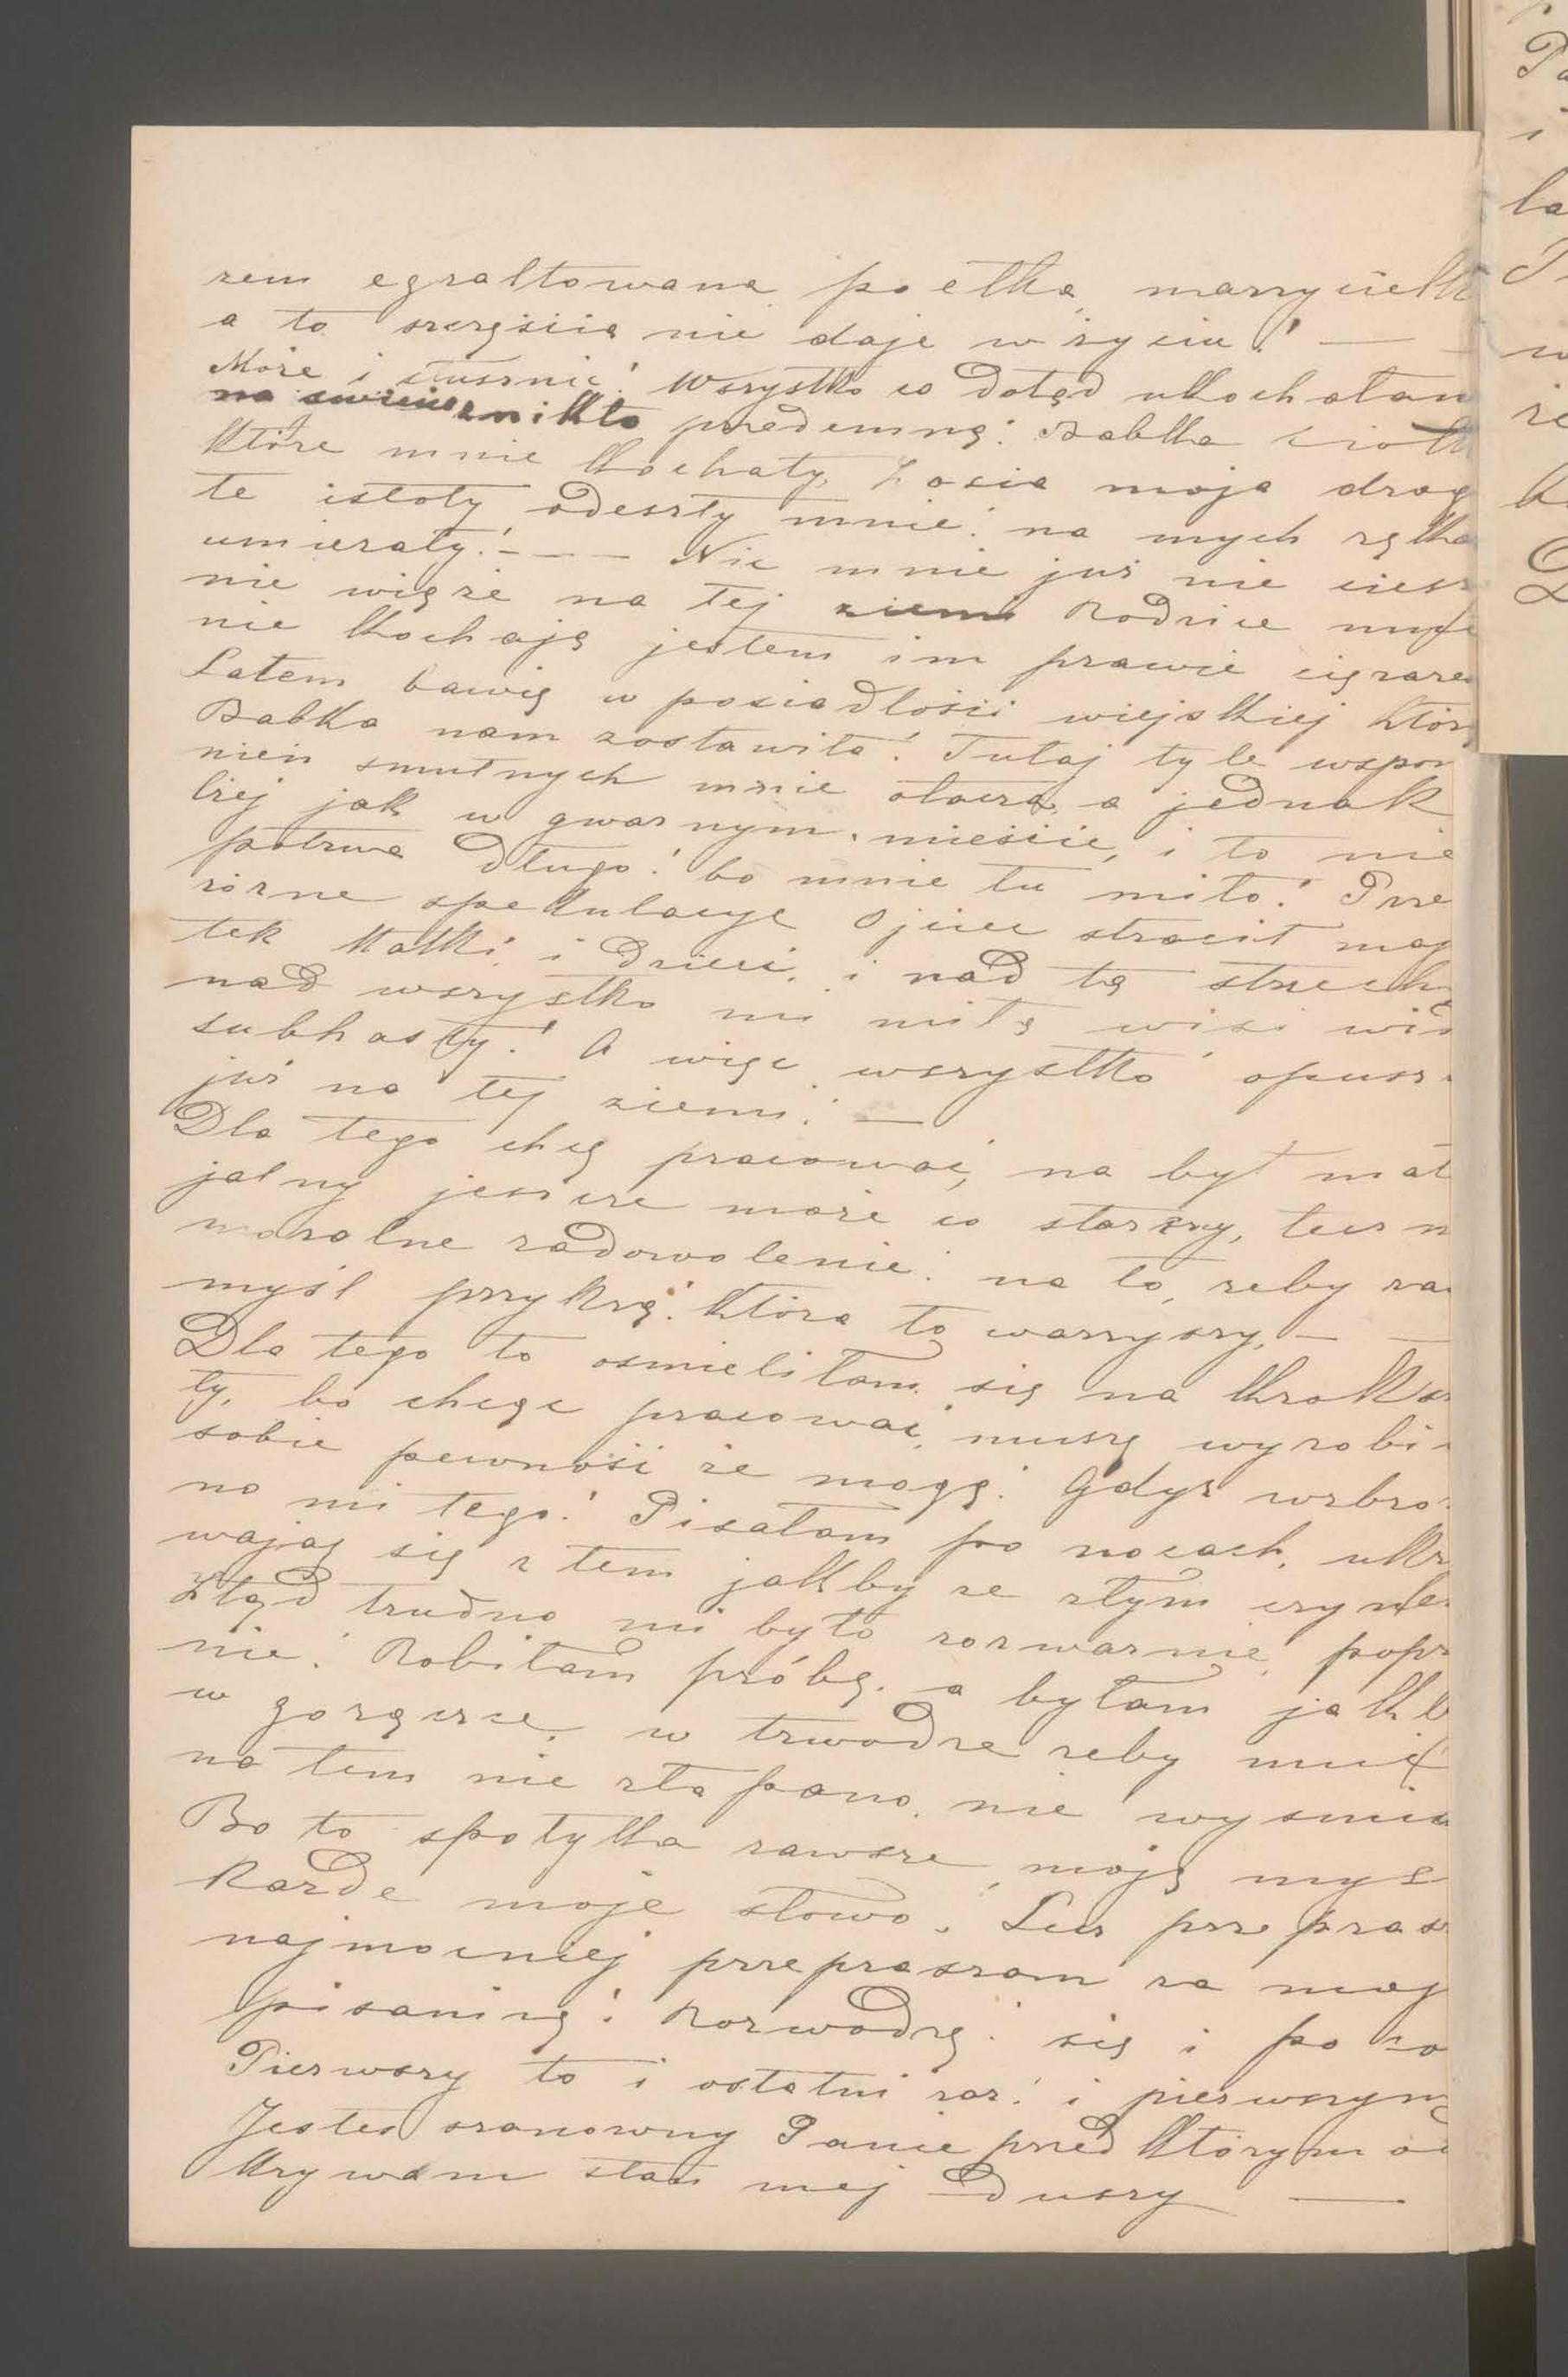 zem egzaltowana poetka, marzycielk
a to szczęścia nie daje w życiu! —
Może i słusznie! Wszystko co dotąd ukochałam
na świecie znikło przedemną! Babka ciotk
które mnie kochały, Zosia moja drog
te istoty odeszły mnie! na mych ręka
umierały! - — — Nic mnie już nie ciesz
nie wiąże na tej ziemi Rodzice mnie
nie kochają jestem im prawie ciężare
Latem bawię w posiadłości wiejskiej któr
Babka nam zostawiła! Tutaj tyle wspom
nień smutnych mnie otacza, a jednak
lżej jak w gwarnym mieście, i to nie
potrwa długo! bo mnie tu miło! Prze
różne spekulacye Ojciec stracił maj
tek Matki i Dzieci, i nad tą strzechą
nad wszystko mi miłą wisi wid
subhasty! A więc wszystko opusz
już na tej ziemi! —
Dla tego chcę pracować, na byt mat
jalny jeszcze może co starszy, lecz n
moralne zadowolenie! na to, żeby za
myśl przykrą! która tą warzyszy, — —
Dla tego to ośmieliłam się na krok
ty, bo chcąc pracować, muszę wyrobi
sobie pewność że mogę! Gdyż wzbro
no mi tego! Pisałam po nocach, ukr
wając się z tem jakby ze złym czynem
Ztąd trudno mi było rozważnie popr
nie! Robiłam próbę, a byłam jakb
w gorączce, w trwodze żeby mnie
na tem nie złapano, nie wyśmia
Bo to spotyka zawsze moję myś
Każde moje słowo. Lecz przeprasz
najmocniej przepraszam za moj
pisaninę! Rozwodzę się i po co
Pierwszy to i ostatni raz! i pierwszym
Jesteś szanowny Panie przed którym od
krywam stan mej Duszy —